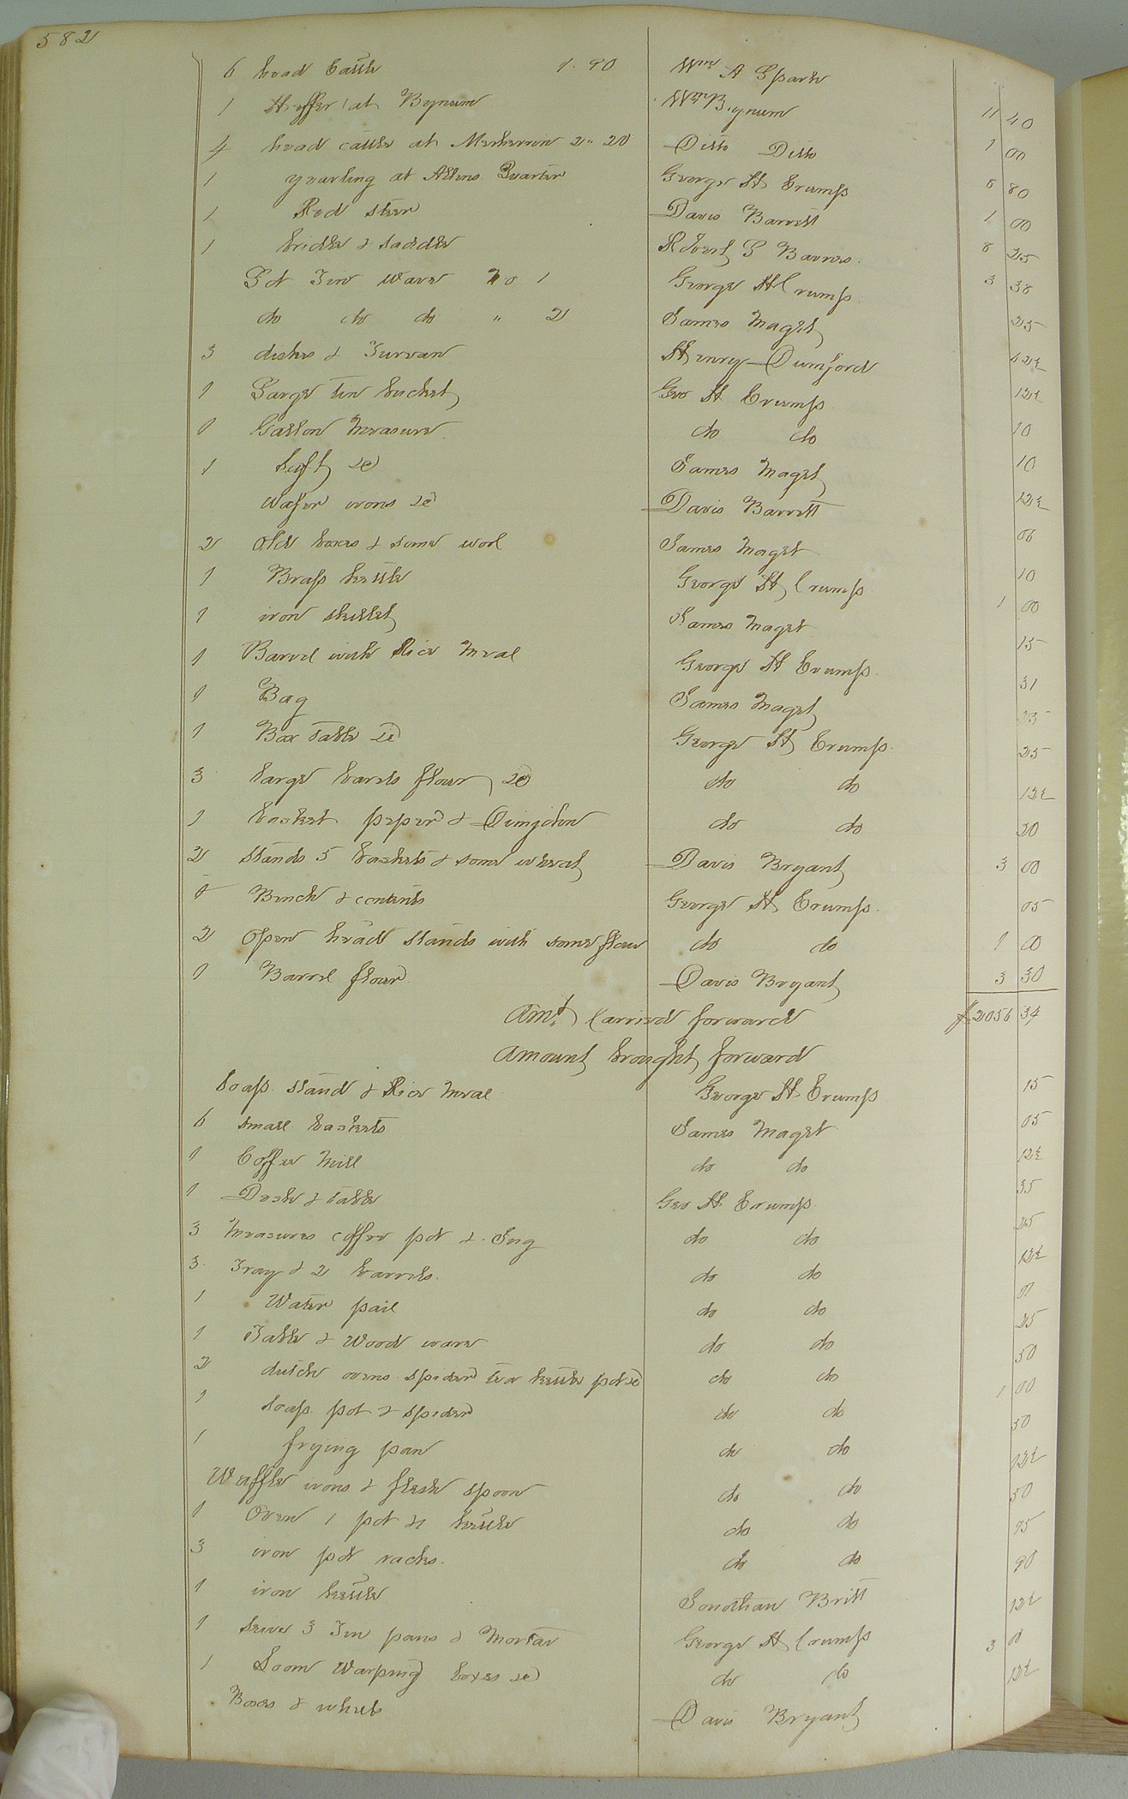 582
6 head Cattle 1.90 Wm A Spark 11 40
1 Heiffer at Bynum Wm Bynum 1 00
4 head cattle at Meherrin 2.20 Ditto Ditto 8 80
1 yearling at Allens Quarter George H Crump 1 00
1 Red steer Davis Barrett 8 25
1 bridle & saddle Robert G Barnes 3 38
Lot Tin ware No 1 George H Crump 25
do do do " 2 James Maget 62½
3 dishes & Tureen Henry Dumford 12½
1 Large tin bucket Geo H Crump 10
1 Gallon Measure do do 10
1 James Maget 12½
wafer irons &c Davis Barrett 06
2 old boxes & some wool James Maget 10
1 Brass kettle George H Crump 1 00
1 iron skillet James Maget 15
1 Barrel with Rice Meal George H Crump 31
1 Bag James Maget 25
1 Box table &c George H Crump 25
3 large barrels flour &c do do 12½
1 basket peper & do do 20
2 stands 5 baskets & some wheat Davis Bryant 3 00
1 Bench & contents George H Crump 05
2 open head stands with some flour do do 1 00
1 Barrel flour Davis Bryant 3 30
Amt. Carried forward $2056 34
Amount brought forward
Soap stand & Rice Meal George H Crump 15
6 small baskets James Maget 05
1 Coffee Mill do do 12½
1 Desk & table Geo H Crump 35
3 Measures coffee pot & Jug do do 25
3 Tray & 2 barrels do do 12½
1 Water pail do do
1 Table & Wood ware do do 25
2 dutch ovens spider tea kettle pot &c do do 50
1 soap pot & spider do do 1 00
1 frying pan do do 50
Waffle irons & flesh spoon do do 12½
1 Oven 1 pot & kettle do do 50
3 iron pot racks do do 95
1 iron kettle Jonathan Britt 90
1 seive 3 Tin pans & Mortar George H Crump 12½
1 Loom Warping boxes &c do do 3 00
Boxes & wheels Davis Bryant 12½